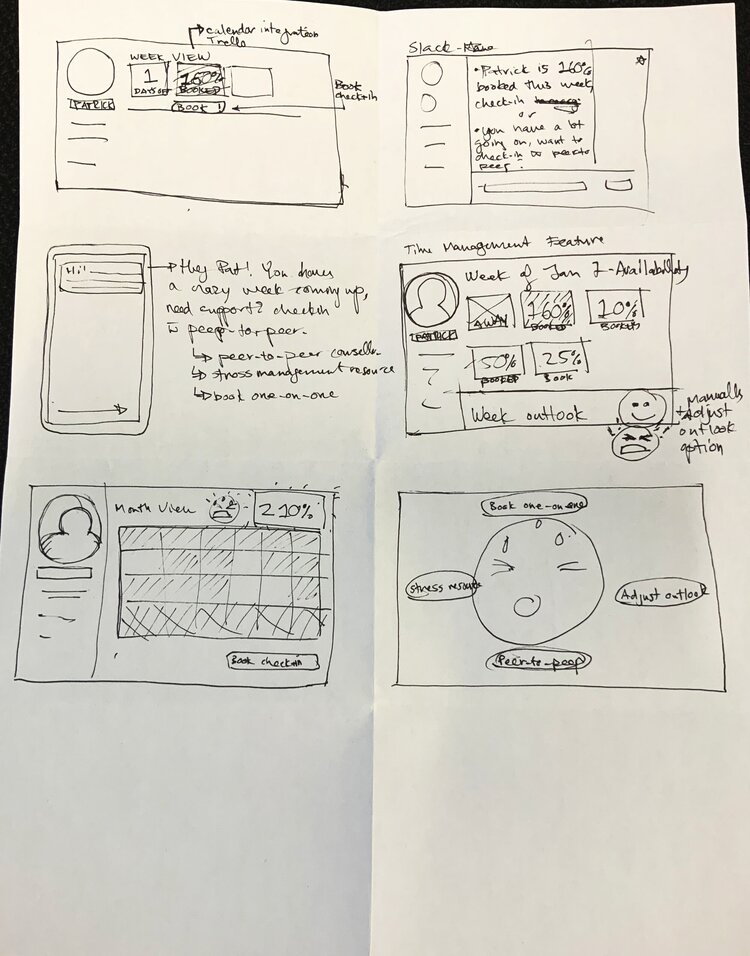 calendar integration
Trello
WEEK VIEW
1
DAYS OFF
160%
BOOKED
PATRICK
BOOK !
Book
check-in
Slack
• Patrick is 160%
booked this week,
check-in
or
• You have a lot
going on, want to
check-in to peer to
peep?
Hi!
Hey Pat! You have
a crazy week coming up,
need support? checkin
to peep-to-peer.
↳ peer-to-peer counsellor
↳ stress management resource
↳ book one-on-one
Time Management Feature
Week of Jan 7-Availability
PATRICK
AWAY
160%
BOOKED
20%
BOOKED
50%
BOOKED
25%
BOOK
Week outlook
Manually
adjust
outlook
option
Month View
210%
Book check-in
Book one-on-one
stress resource
Adjust outlook
Peer-to-peep